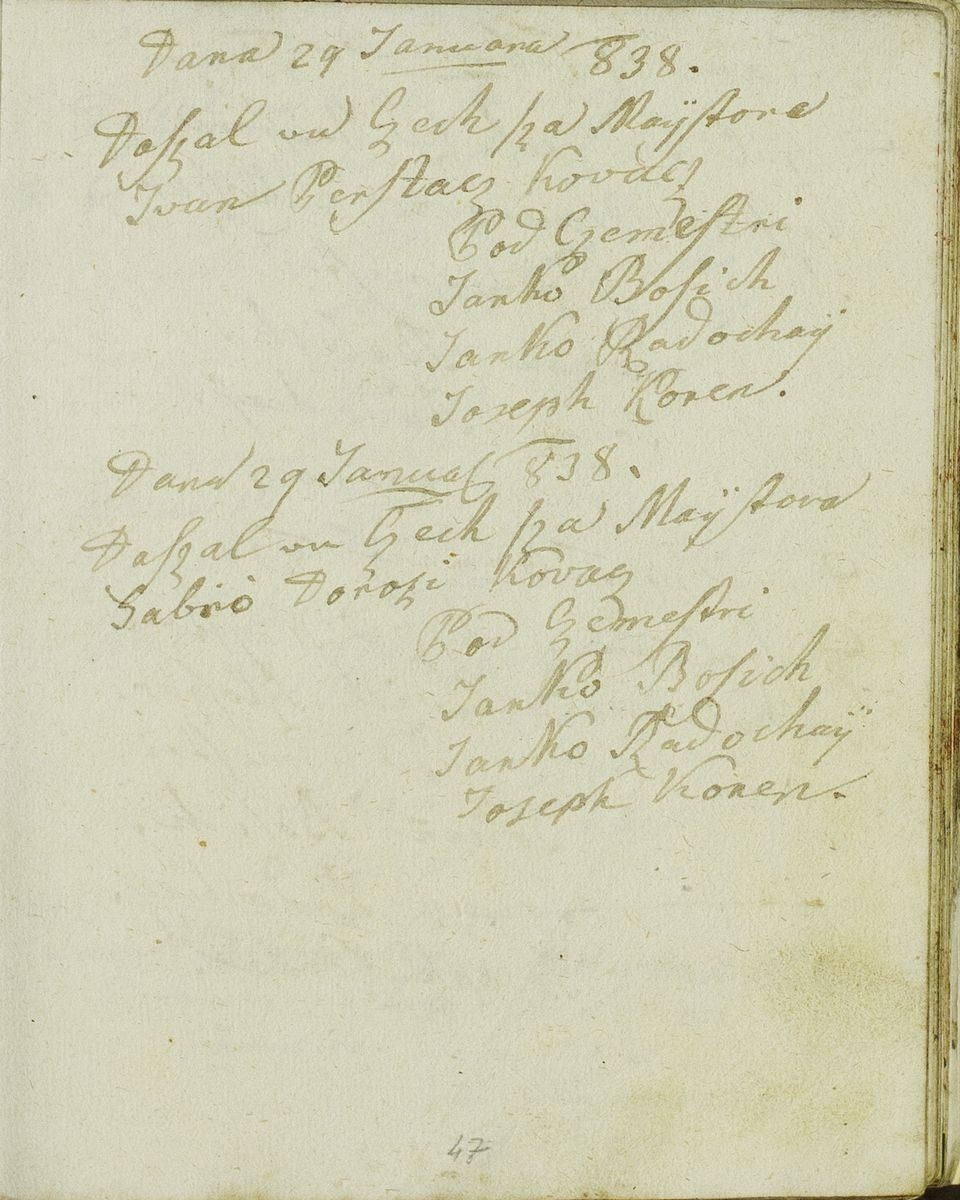 Dana 29 Januara 838.
Doſzal vu Czeh ſza Maÿſtora
Ivan Perſtacz Kovacz
Pod Czemeſtri
Janko Boſich
Janko Radochaÿ
Joseph Koren.
Dana 29 Januar 838.
Doſzal vu Czeh ſza Maÿſtora
Gabro Doroczi Kovacz
Pod Czemeſtri
Janko Boſich
Janko Radochaÿ
Joseph Koren.
47